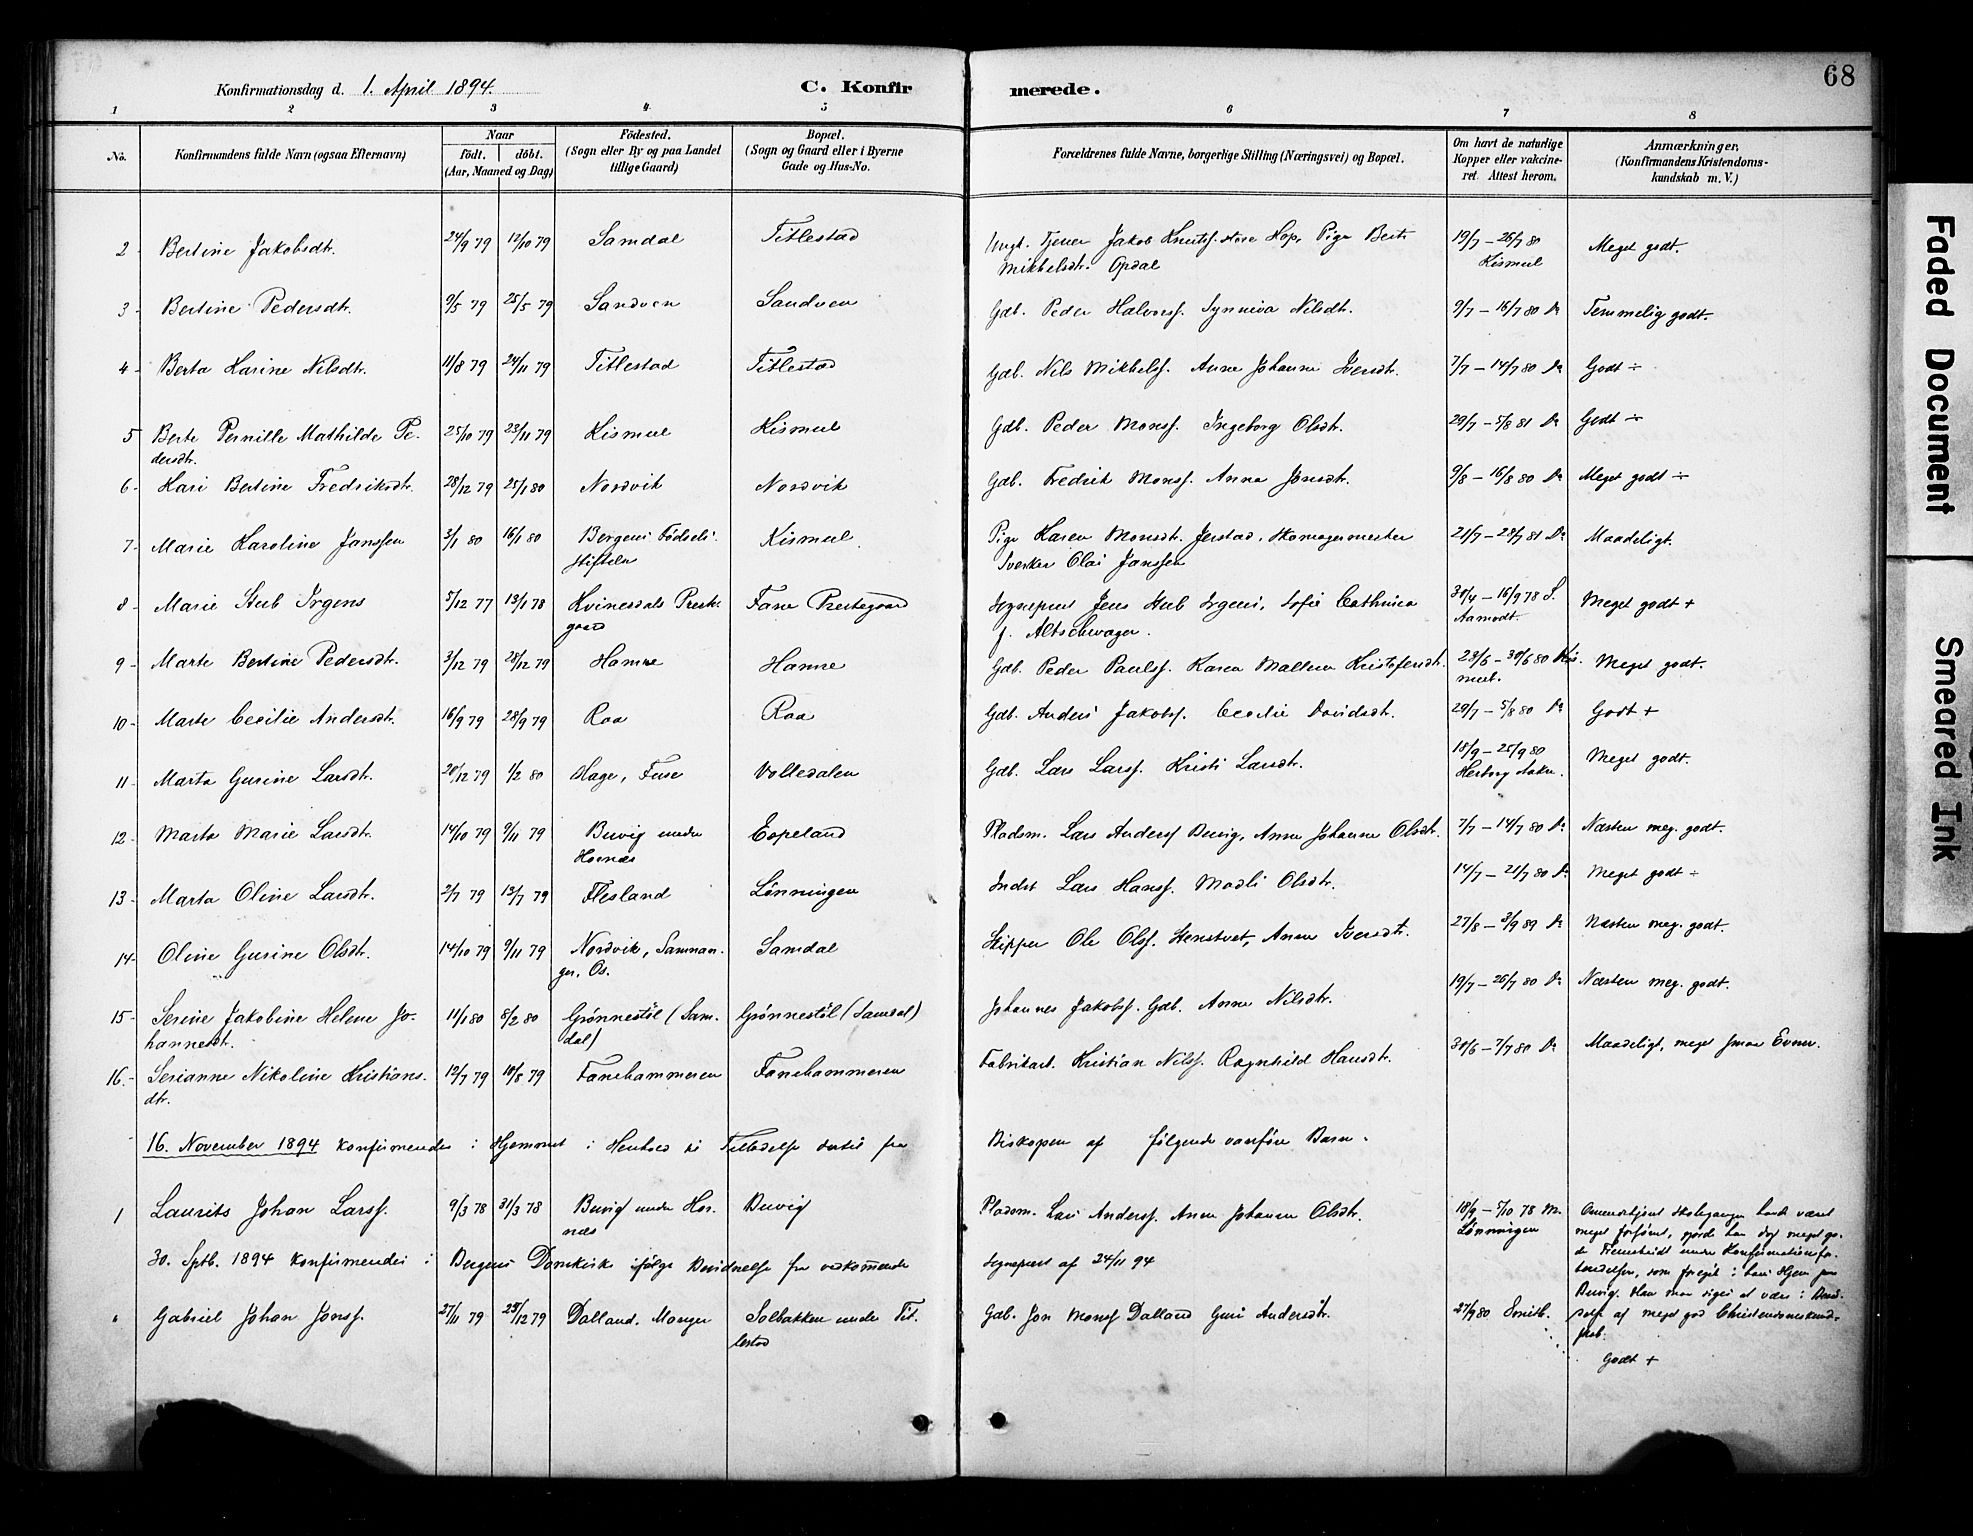 68
Konfirmationsdag d. 1. April 1894.
C. Konfir merede.
1 2 3 4 5 6 7 8
No. Konfirmandens fulde Navn (ogsaa Efternavn) Naar født. døbt. (Aar, Maaned og Dag) Fødested. (Sogn eller By og paa Landet tillige Gaard) Bopæl. (Sogn og Gaard eller i Byerne Gade og Hus-No. Forældrenes fulde Navne, borgerlige Stilling (Næringsvei) og Bopæl. Om havt de naturlige Kopper eller vakcineret. Attest herom. Anmærkninger. (Konfirmandens Kristendomskundskab m. V.)
2 - Bertine Jakobsdtr. 24/9 79 12/10 79 Samdal Titlestad Ungk. Tjener Jakob Knutsf. Hop, Pige Berte 19/7 - 26/7 80 Meget godt.
Mikkelsdtr. Opdal Kismul
3 - Bertine Pedersdtr. 9/5 79 25/5 79 Sandven Sandven Gdb. Peder Halvorsf. Synneva Nilsdtr. 9/7 - 16/7 80 Do Temmelig godt.
4 - Berta Karine Nilsdtr. 11/8 79 24/11 79 Titlestad Titlestad Gdb. Nils Mikkelsf. Anne Johanne Iversdtr. 7/7 - 14/7 80 Do Godt ÷
5 Berte Pernille Mathilde Pe- 25/10 79 23/11 79 Kismul Kismul Gdb. Peder Monsf. Ingeborg Olsdtr. 29/7 - 5/8 81 Do Godt ÷
dersdtr.
6 - Kari Bertine Fredriksdtr. 28/12 79 25/1 80 Nordvik Nordvik Gdb. Fredrik Monsf. Anna Jonsdtr. 9/8 - 16/8 80 Do Meget godt ÷
7 - Marie Karoline Janssen 3/1 80 16/1 80 Bergens Fødsels- Kismul Pige Karen Monsdtr. Jerstad, Skomagermester 21/7 - 28/7 81 Do Maadeligt.
stiftelse Sverker Olai Janssen
8 - Marie Stub Irgens 5/12 77 13/1 78 Kvinesdals Preste- Fane Prestegaard Sognepræst Jens Stub Irgens, Sofie Cathrina 30/4 - 16/9 78 S. Meget godt +
gaard f. Altschwager. Aamodt.
9 - Marte Bertine Pedersdtr. 3/12 79 28/12 79 Hamre Hamre Gdb. Peder Paulsf. Karen Malene Kristofersdtr. 23/6 - 30/6 80 Kis- Meget godt.
mul.
10 - Marte Cecilie Andersdtr. 16/9 79 28/9 79 Raa Raa Gdb. Anders Jakobsf. Cecilie Davidsdtr. 29/7 - 5/8 80 Do Godt +
11 - Marta Gurine Larsdtr. 20/12 79 1/2 80 Hage, Fuse Volledalen Gdb. Lars Larsf. Kristi Larsdtr. 18/9 - 25/9 80 Meget godt.
12 - Marta Marie Larsdtr. 14/10 79 9/11 79 Buvig under Espeland Pladsm. Lars Andersf Buvig, Anne Johanne Olsdtr. 7/7 - 14/7 80 Do Næsten meg. godt.
Hornæs
13 - Marta Oline Larsdtr. 2/7 79 13/7 79 Flesland Lønningen Inderst Lars Hansf. Madli Olsdtr. 14/7 - 21/7 80 Do Meget godt ÷
14 - Oline Gurine Olsdtr. 14/10 79 9/11 79 Nordvik, Samnan- Samdal Skipper Ole Olsf. Stenstvet, Anne Iversdtr. 27/8 - 3/9 89 Do Næsten meg. godt.
ger, Os.
15 - Serine Jakobine Helene Jo- 11/1 80 8/2 80 Grønnestøl (Sam- Grønnestøl (Samdal) Johannes Jakobsf. Gdb. Anne Nilsdtr. 19/7 - 26/7 80 Do Næsten meg. godt.
hannesdtr. dal)
16. - Serianne Nikoline Kristians- 12/7 79 10/8 79 Fanehammeren Fanehammeren Fabrikarb. Kristian Nilsf. Ragnhild Hansdtr. 30/6 - 7/7 80 Do Maadeligt, meget smaa Evner.
dtr.
16. November 1894 konfirmeredes i Hjemmet i Henhold til Tilladelse dertil fra Biskopen af følgende vanføre Barn.
1 Laurits Johan Larsf. 9/3 78 31/3 78 Buvig under Hor- Buvig Pladsm. Lars Andersf. Anne Johanne Olsdtr. 18/9 - 5/10 78 M.
næs Lønningen
Omendskjønt Skolegangen havde været
meget forsømt, gjorde han dog meget go-
de Fremskridt under Konfirmationsfor-
beredelsen, som foregik i hans Hjem paa
Buvig. Han maa siges at være i Besid-
delse af meget god Christendomskund-
skab.
30. Sptb. 1894 konfirmeredes i Bergens Domkirke ifølge Bevidnelse fra vedkommende Sognepræst af 24/11 94
Gabriel Johan Jonsf. 27/11 79 25/12 79 Dalland. Manger Solbakken under Tit- Gdb. Jon Monsf Dalland Guri Andersdtr. 27/9 80 Smith.
lestad
Godt +
Faded Document
Smeared Ink